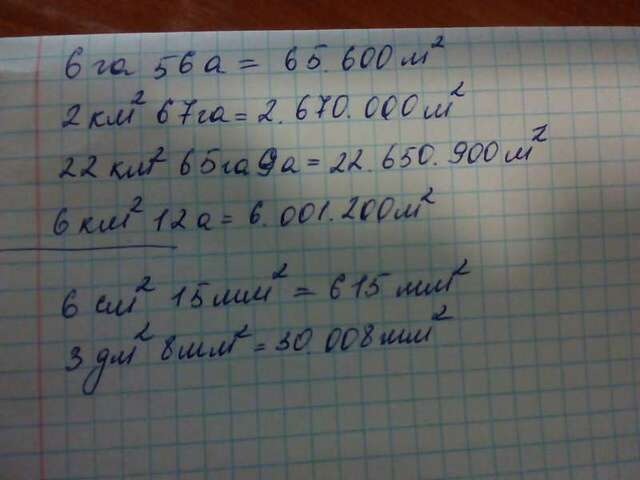 6 га 56 а = 65.600 м²
2 км² 67 га = 2.670.000 м²
22 км² 65 га 9 а = 22.650.900 м²
6 км² 12 а = 6.001.200 м²
6 см² 15 мм² = 615 мм²
3 дм² 8 мм² = 30.008 мм²